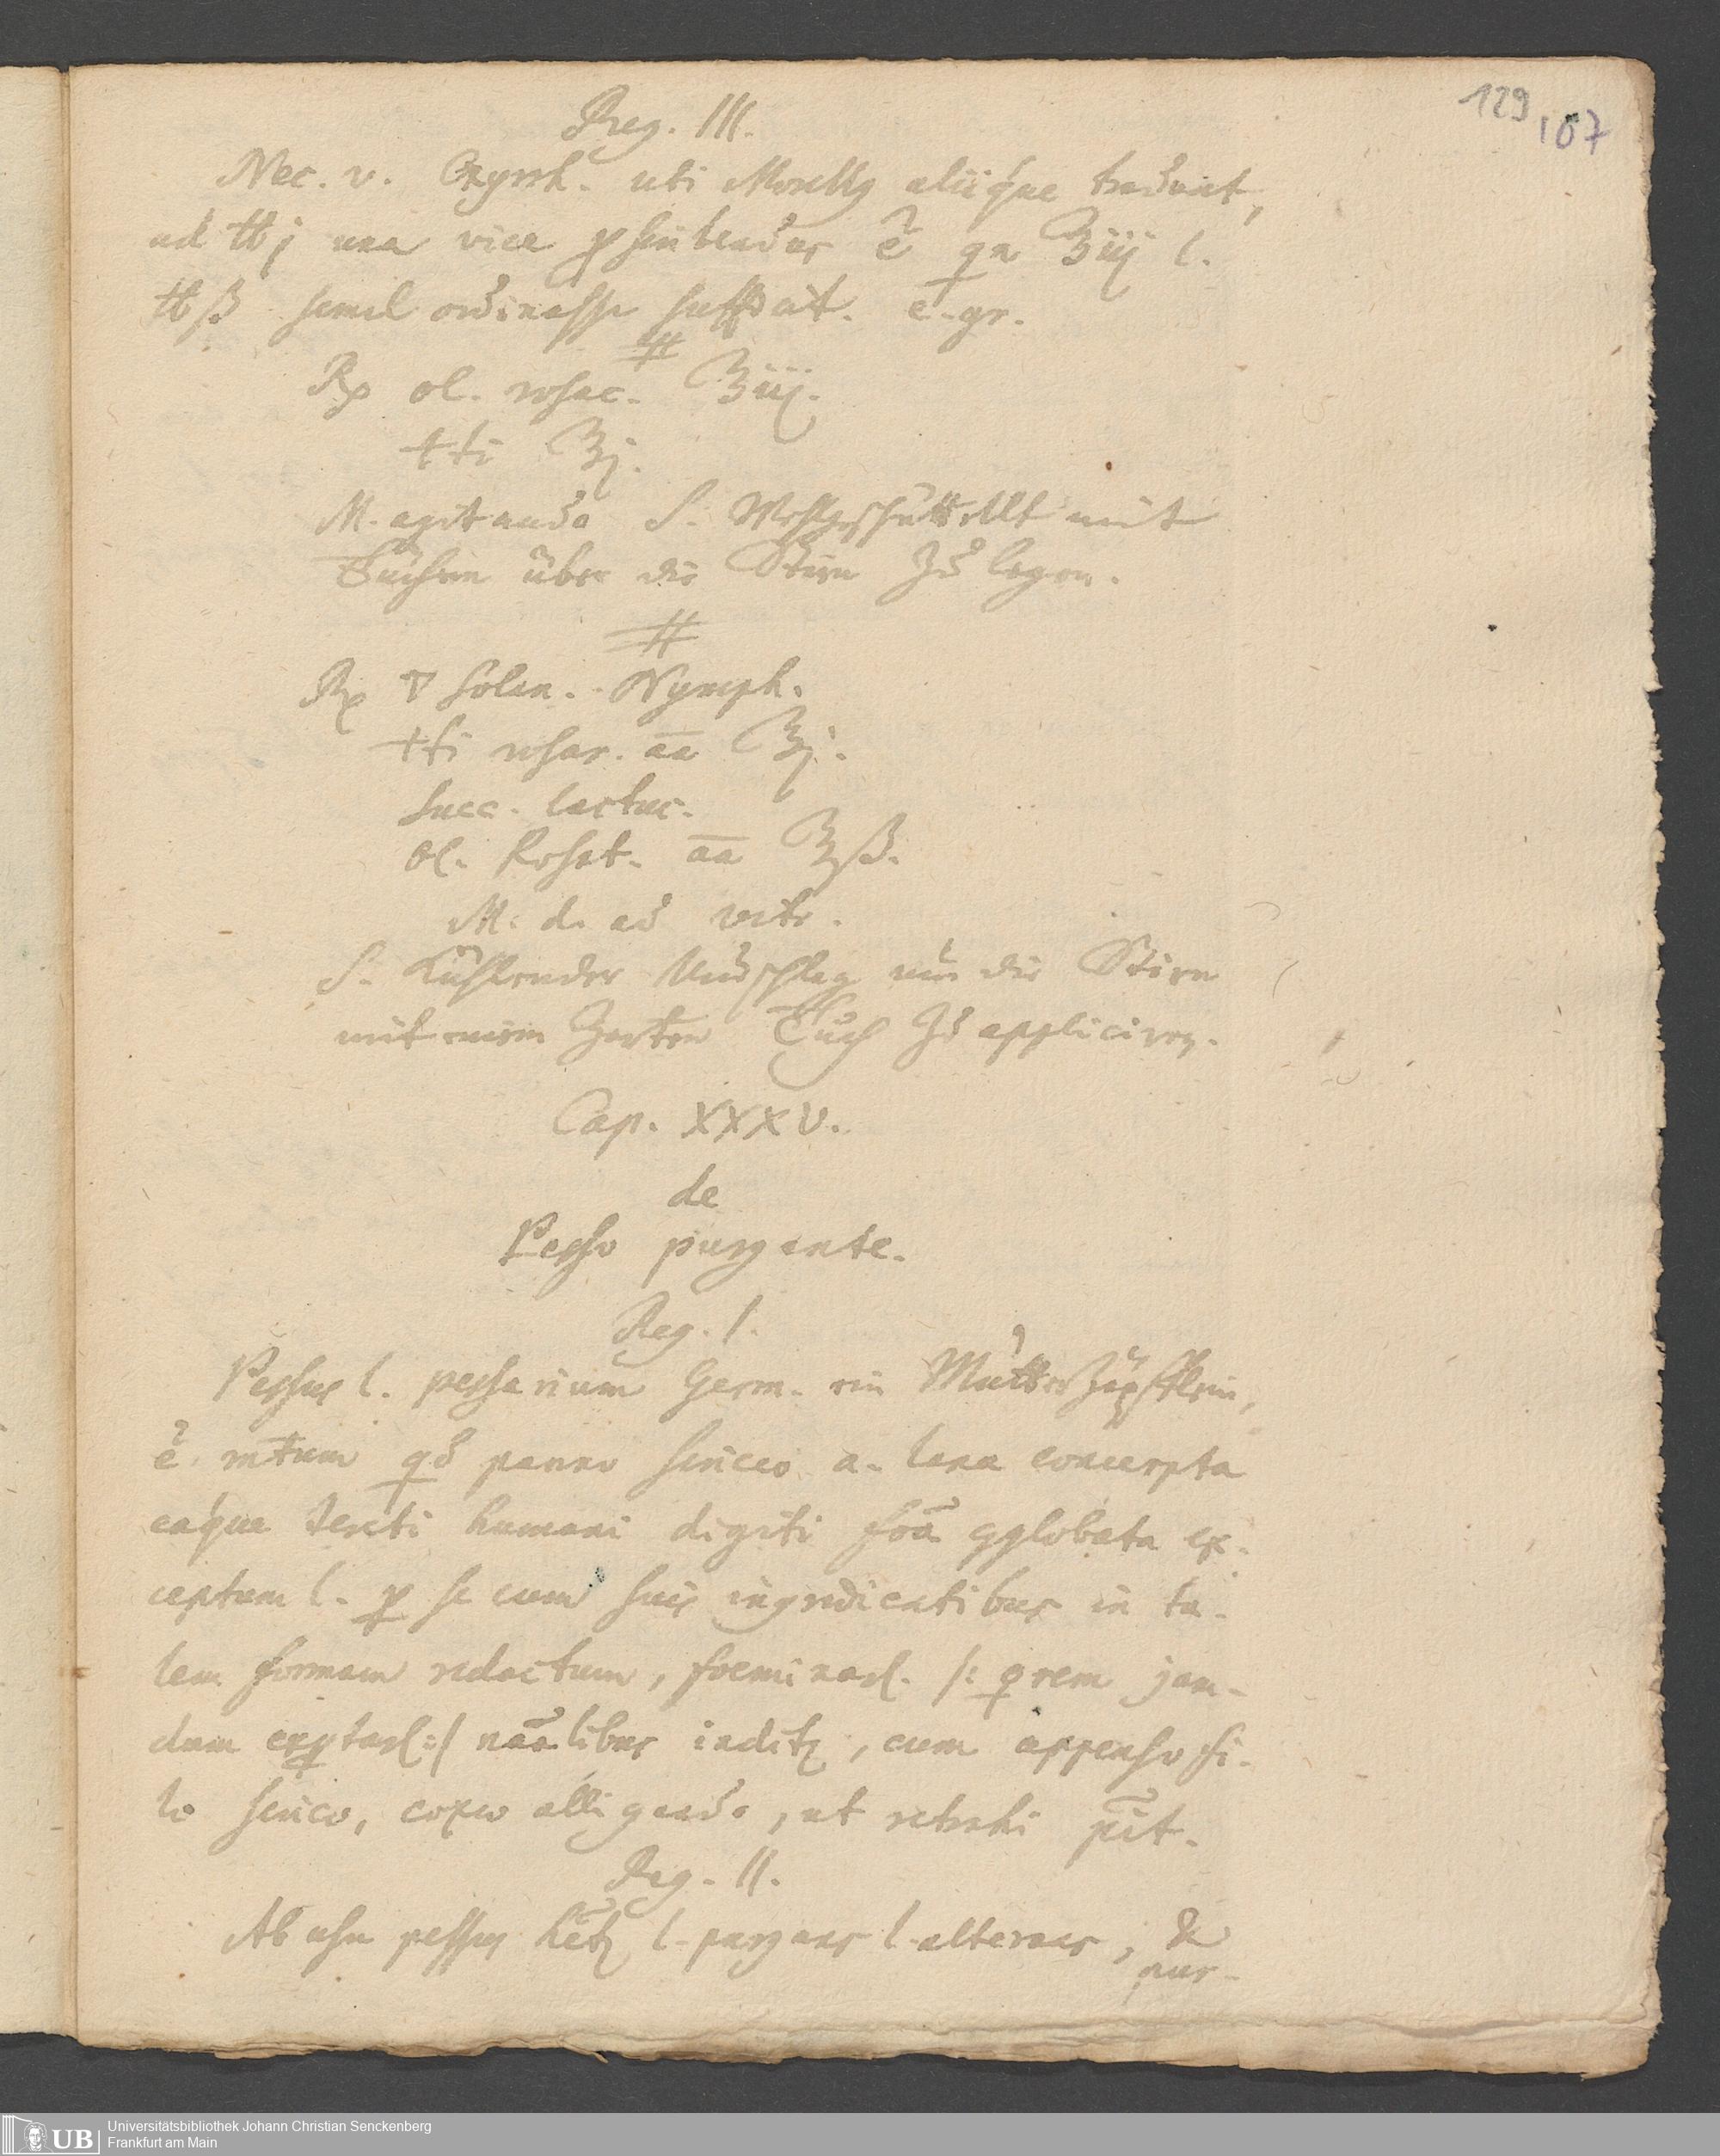 129
107
Reg. III.
Nec. v. Oxyrrh. uti Morellg aliiq́ue tradunt,
ad ℔j una vice p̱scribendus ẽ qn ℥iij l.
℔ß semel ordinasse sufficiat. e. gr.
#
Rp ol. rosac. ℥iij.
++ti ℥j.
M. agitando S. Wohlgeschüttellt mit
Tüchern über die Stirn zŭ legen.
#
Rp ▽ Solan. Nymph.
++ti rosar. āā ℥j.
Succ. lactuc.
Ol. Rosat. āā ℥ß.
M. d. ad vitr.
S. Kühlender Umschlag um die Stirn
mit einem zarten Tuch zŭ appliciren.
Cap. XXXV.
de
Pesso purgante.
Reg. I.
Pessus l. pessarium Germ. ein Mutterzäpfflein,
ẽ mtum qd panno sericeo a. lana concerpta
eaq́ue tereti humani digiti foã gglobata ex-
ceptum l. p̱ se cum suis ingredientibus in ta-
lem formam redactum, foeminar. /: prem jam-
dum exptar:/ nãalibus inditg, cum appenso fi-
lo serico, coxae alligando, ut retrahi pit.
Reg. II.
Ab usu pessus hetg l. purgans l. alterans, &
pur-
Universitätsbibliothek Johann Christian Senckenberg
Frankfurt am Main
UB